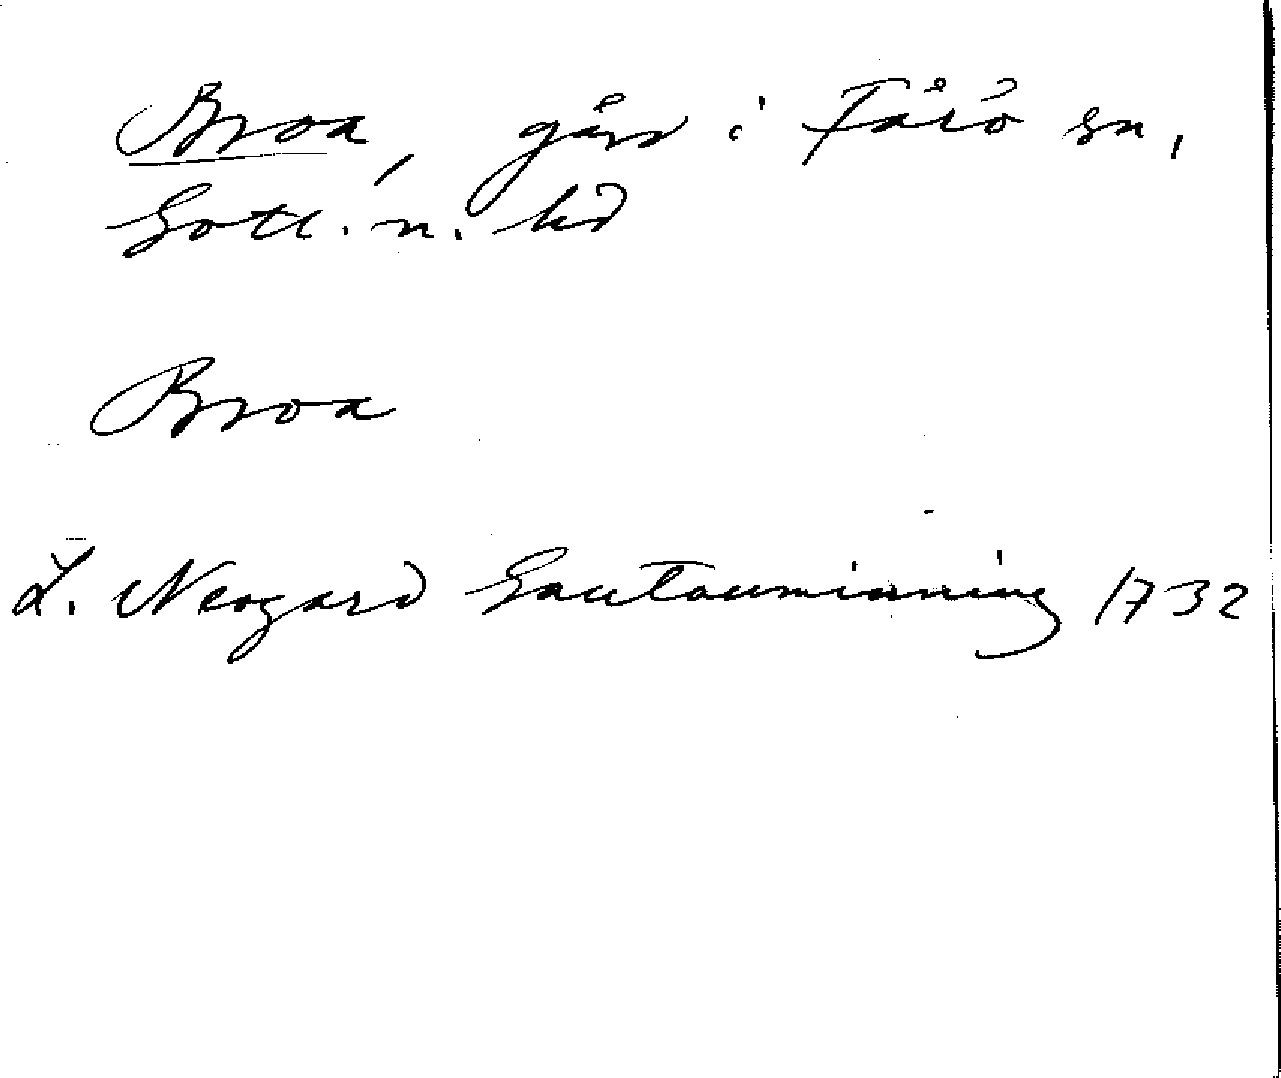 Broa, gård i Fårö sn,
Gotl. n. hd
Broa
L. Neogard Gautauminning 1732